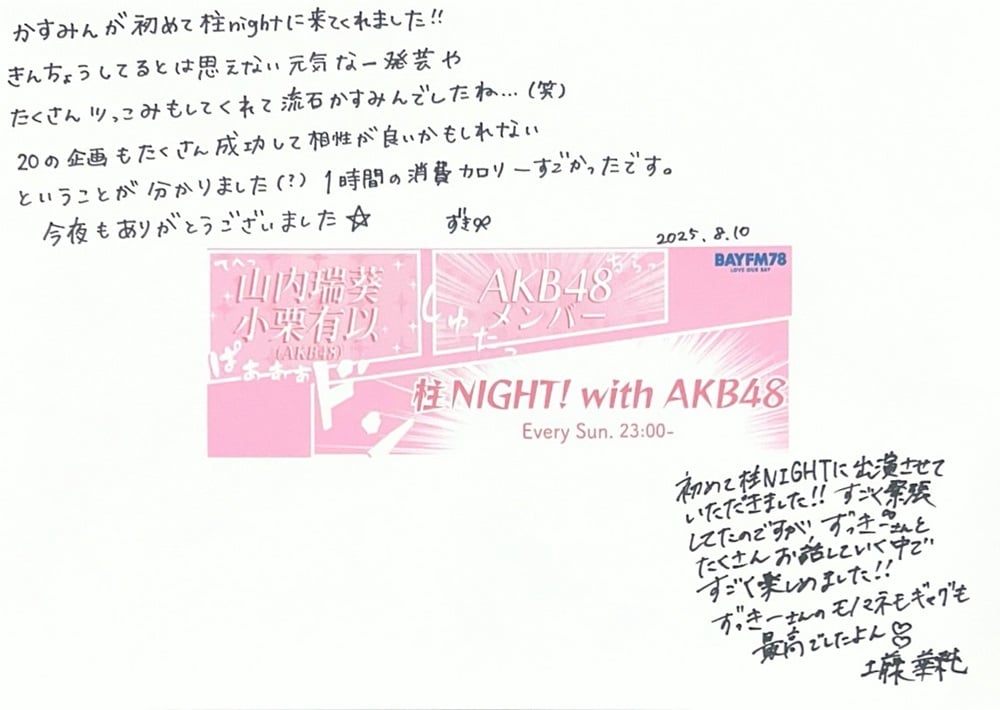 かすみんが初めて柱nightに来てくれました!!
きんちょうしてるとは思えない元気な一発芸や
たくさんツっこみもしてくれて流石かすみんでしたね…(笑)
20の企画もたくさん成功して相性が良いかもしれない
ということが分かりました(?) 1時間の消費カロリーすごかったです。
今夜もありがとうございました☆ ずき
2025.8.10
てへっ
山内瑞葵
小栗有以
(AKB48)
ぱぁぁぁぁ
AKB48
メンバー
ちらっ
しゅたっ
BAYFM78
LOVE OUR BAY
ド
柱NIGHT! with AKB48
Every Sun. 23:00-
初めて柱NIGHTに出演させて
いただきました!! すごく緊張
してたのですが、ずっきーさんと
たくさんお話していく中で
すごく楽しめました!!
ずっきーさんのモノマネもギャグも
最高でしたよん♡
工藤華純